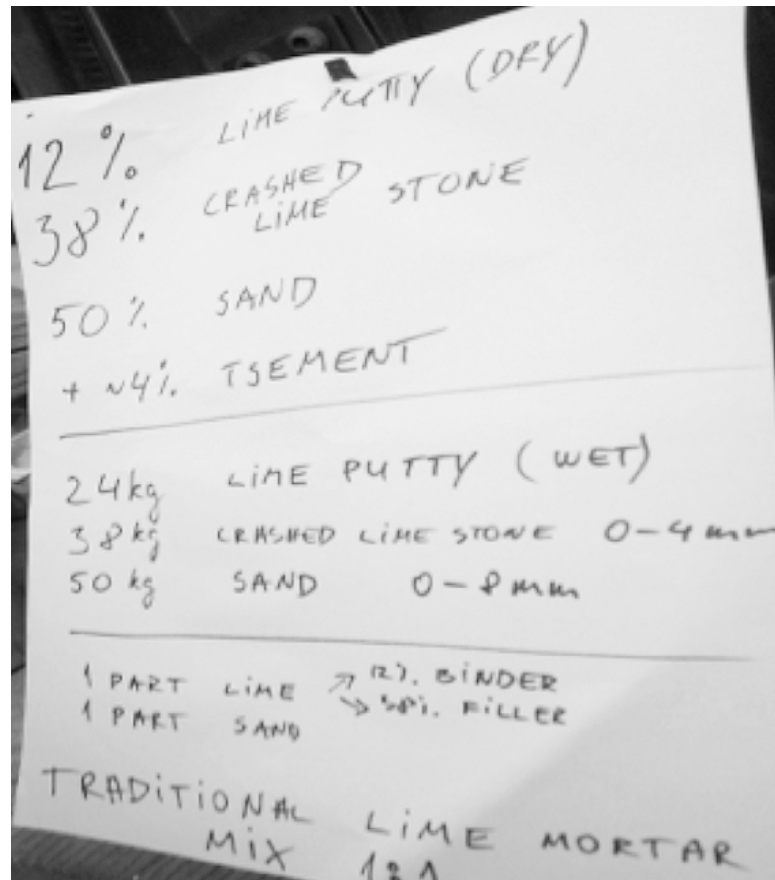 12 % LIME PUTTY (DRY)
38 % CRASHED LIME STONE
50 % SAND
+ ~4% TSEMENT
24 kg LIME PUTTY (WET)
38 kg CRASHED LIME STONE 0-4 mm
50 kg SAND 0-8 mm
1 PART LIME ↗ 12% BINDER
1 PART SAND ↘ 38% FILLER
TRADITIONAL LIME MORTAR
MIX